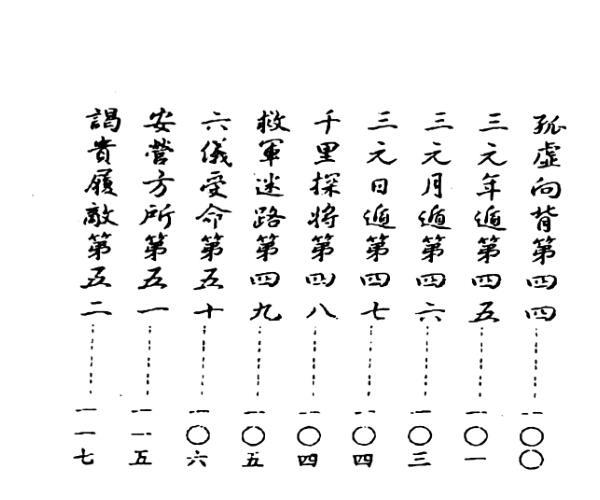 孤虛向背第四四……一〇〇
三元年遁第四五……一〇一
三元月遁第四六……一〇三
三元日遁第四七……一〇四
千里探将第四八……一〇四
救軍迷路第四九……一〇五
六儀受命第五十……一〇六
安營方所第五一……一一五
謁貴履敵第五二……一一七